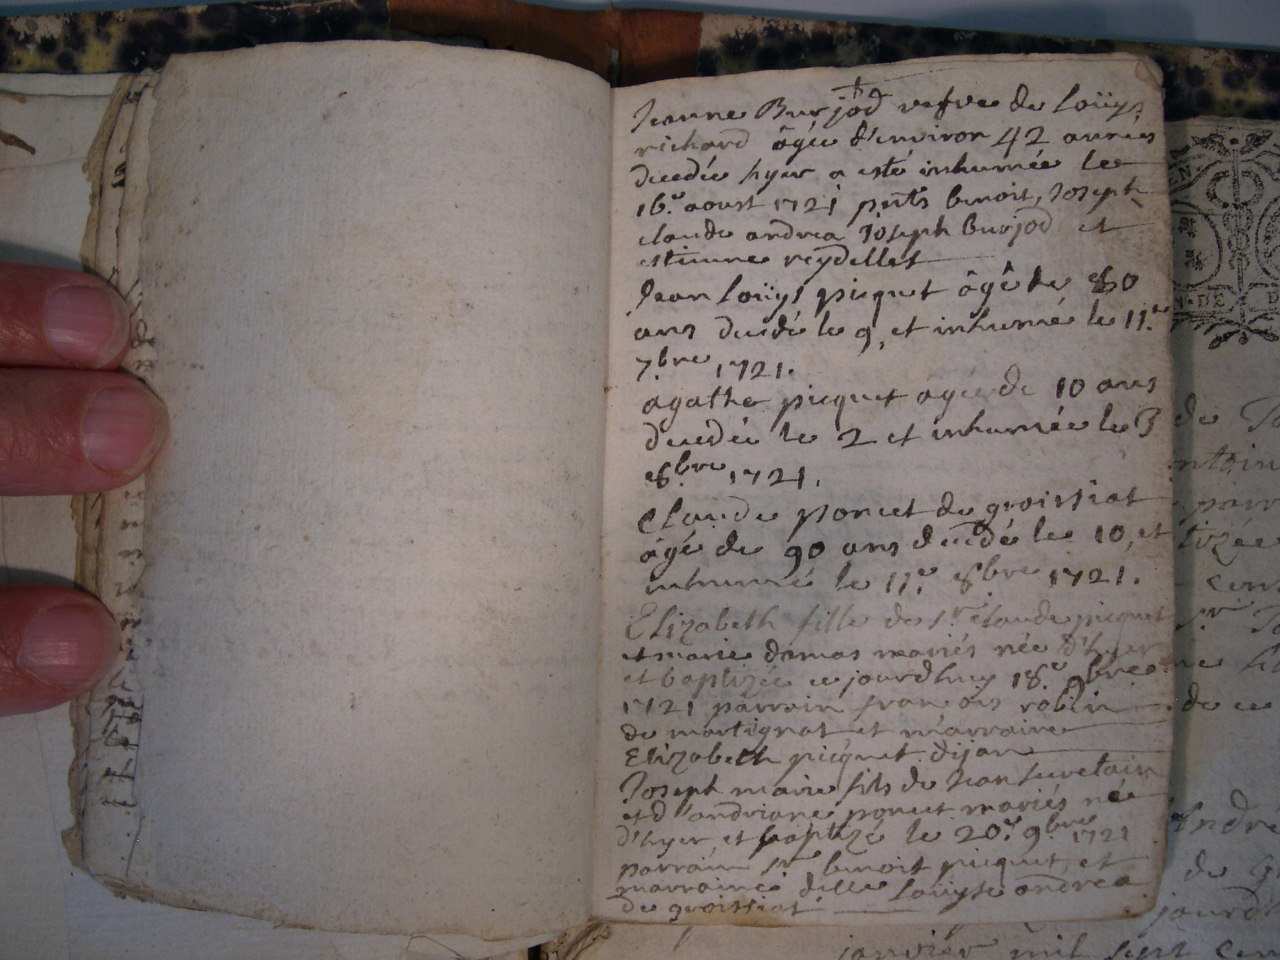 Jeanne Burjod vefve de Loüys
richard âgée d'environ 42 années
decedée hyer a esté inhumée le
16.e aoust 1721 pnts benoit, Joseph
claude andrea Joseph burjod et
estienne reydellet
Jean Loüys picquet âgé de 80
ans decedé le 9, et inhumé le 11.e
7.bre 1721.
agathe picquet agée de 10 ans
decedée le 2 et inhumée le 3
8.bre 1721.
Claude poncet de groissiat
âgé de 90 ans decedé le 10, et
inhumé le 11.e 8bre 1721.
Elizabeth fille de Sr. claude picquet
et marie damas mariés née d'hyer
et baptizée ce jourdhuy 18.e 9bre
1721 parrain francois robin
de martignat et marraine
Elizabeth picquet dijan
Joseph marie fils de Jean Secretain
et d'andriane poncet mariés né
d'hyer et baptizé le 20.e 9bre 1721
parrain sr. benoit picquet, et
marraine dlle Loüyse andrea
de groissiat
de
parr
tizée
cen
Sr
de ce
Andre
de
jourd
janvier mil sept cen